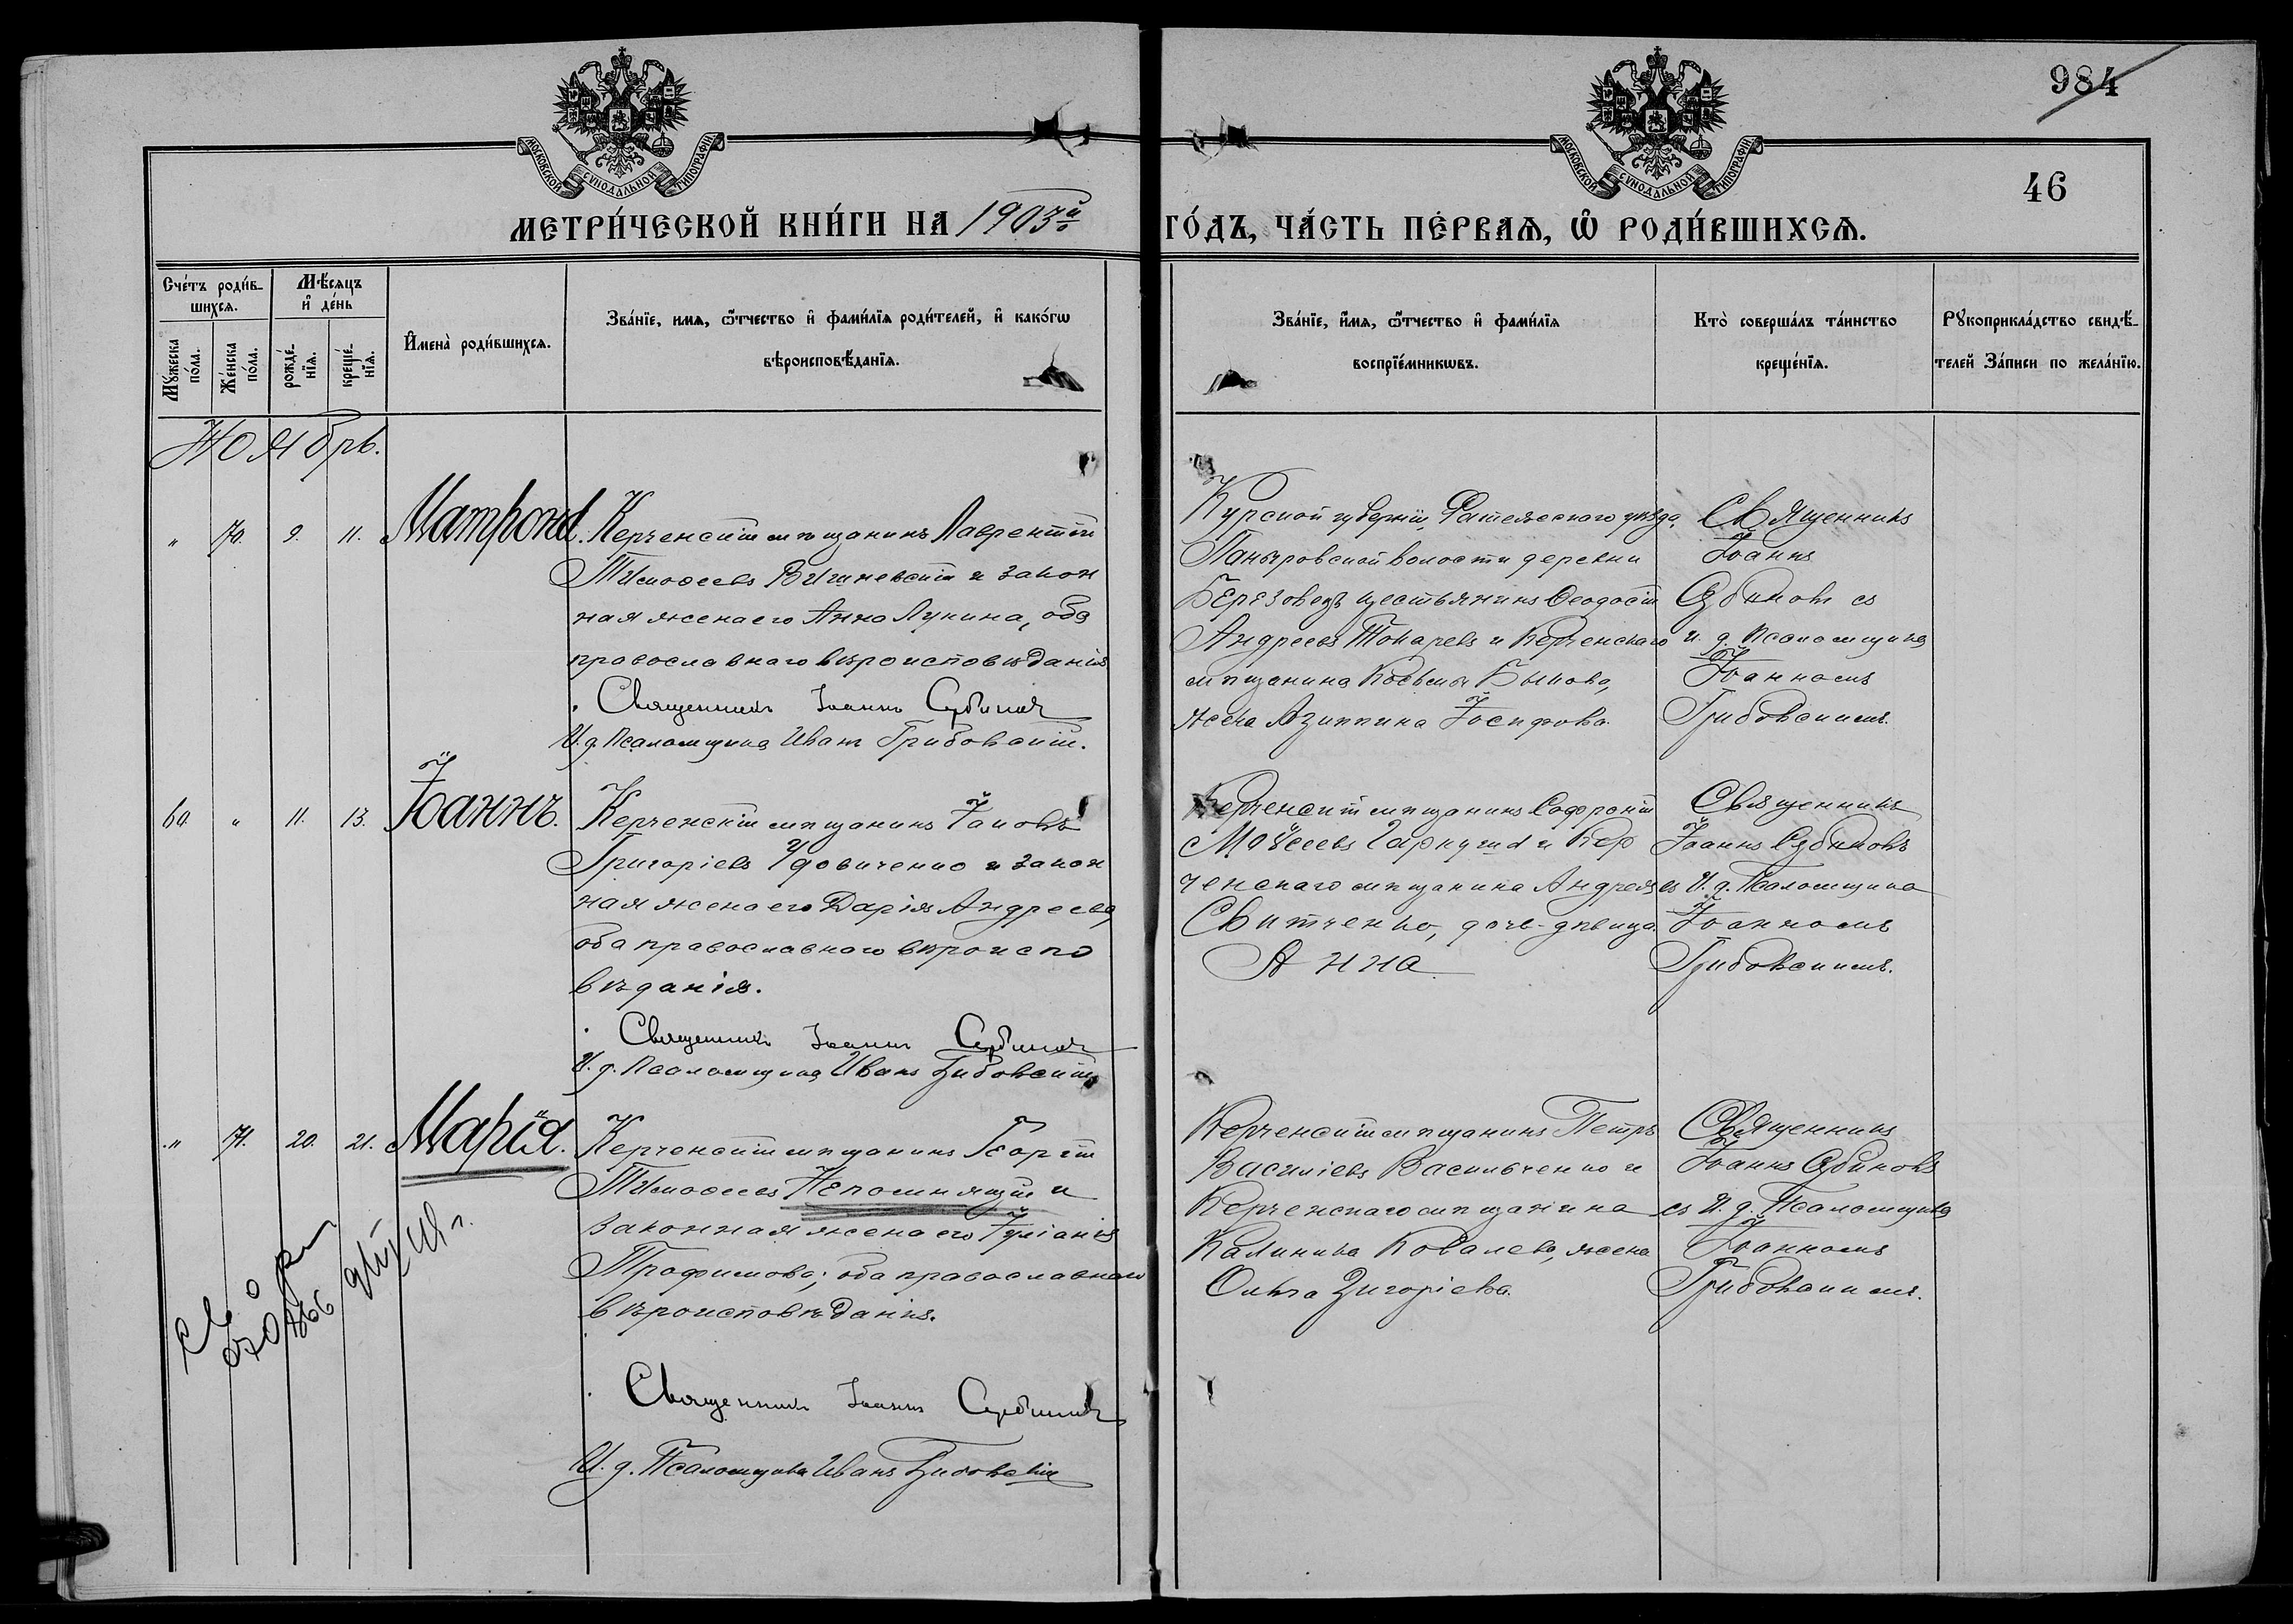 984
46
МОСКОВСКОЙ СѴНОДАЛЬНОЙ ТИПОГРАФІИ
МОСКОВСКОЙ СѴНОДАЛЬНОЙ ТИПОГРАФІИ
МЕТРИ́ЧЕСКОЙ КНИ́ГИ НА 1903й
ГО́ДЪ, ЧА́СТЬ ПЕ́РВАѦ, Ѽ РОДИ́ВШИХСѦ.
Сче́тъ роди́в-
шихсѧ.
Мѣ́сѧцъ
и҆ де́нь
Мꙋ́жеска по́ла.
Же́нска по́ла.
рожде́-
нїѧ.
креще́-
нїѧ.
И҆мена̀ роди́вшихсѧ.
Зва́нїе, имѧ, ѻ҆́тчество и҆ фами́лїѧ роди́телей, и҆ како́гѡ
вѣроисповѣ́данїѧ.
Зва́нїе, и҆́мѧ, ѻ҆́тчество и҆ фами́лїѧ
воспрїе́мникѡвъ.
Кто̀ соверша́лъ та́инство
креще́нїѧ.
Рꙋкоприкла́дство свидѣ́-
телей За́писи по жела́нїю.
Ноябрь.
" 70. 9. 11. Матрона. Керченскій мѣщанинъ Лаврентій
Тимофеевъ Вишневскій и закон
ная жена его Анна Лукина, оба
православнаго вѣроисповѣданія
Священникъ Іоаннъ Сербиновъ
И. д. Псаломщика Иванъ Грибовскій.
Курской губерніи, Фатежскаго уѣзда,
волости деревни
Березовецъ крестьянинъ Феодосій
Андреевъ Токаревъ и Керченскаго
мѣщанина Косьмы Быкова,
жена Агриппина Іосифова.
Священникъ
Іоаннъ
Сербиновъ съ
и. д. псаломщика
Іоанномъ
Грибовскимъ.
60. " 11. 13. Іоаннъ. Керченскій мѣщанинъ Іаковъ
Григоріевъ Удовиченко и закон
ная жена его Дарія Андреева,
оба православнаго вѣроиспо
вѣданія.
Священникъ Іоаннъ Сербиновъ
И. д. Псаломщика Иванъ Грибовскій
Керченскій мѣщанинъ Софроній
Моѵсеевъ Гаркуша и Кер
ченскаго мѣщанина Андрея
Свитченко, дочь-дѣвица
Анна
Священникъ
Іоаннъ Сербиновъ
съ И. д. Псаломщика
Іоанномъ
Грибовскимъ.
" 71. 20. 21. Марія. Керченскій мѣщанинъ Георгій
Тимофеевъ Непомнящій и
законная жена его Іуліанія
Трофимова; оба православнаго
вѣроисповѣданія.
Священникъ Іоаннъ Сербиновъ
И. д. Псаломщика Иванъ Грибовскій
Керченскій мѣщанинъ Петръ
Василіевъ Васильченко и
Керченскаго мѣщанина
Калиника Ковалева, жена
Ольга Григоріева.
Священникъ
Іоаннъ Сербиновъ
съ И. д. Псаломщика
Іоанномъ
Грибовскимъ.